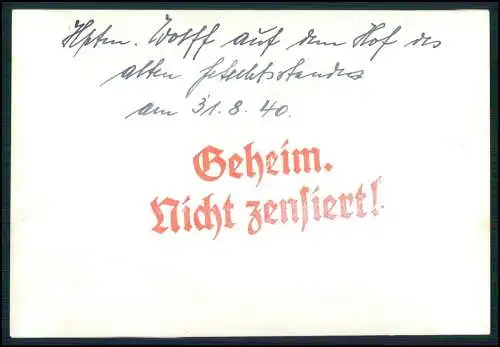 Hptm. Wolff auf dem Hof des
alten Gefechtsstandes
am 31.8.40.
Geheim.
Nicht zensiert!